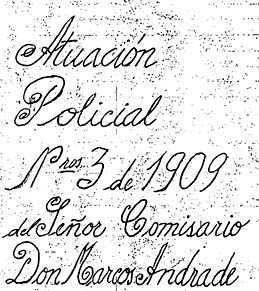 Atuación
Policial
Nros. 3 de 1909
del Señor Comisario
Don Marcos Andrade